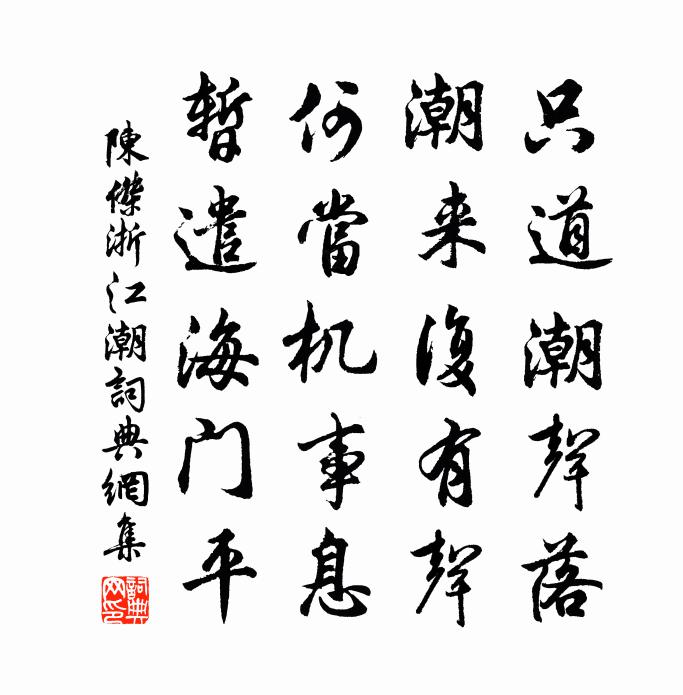 只道潮聲落
潮来復有聲
何當机事息
暫遣海门平
陳傑浙江潮詞典網集
詞典网印